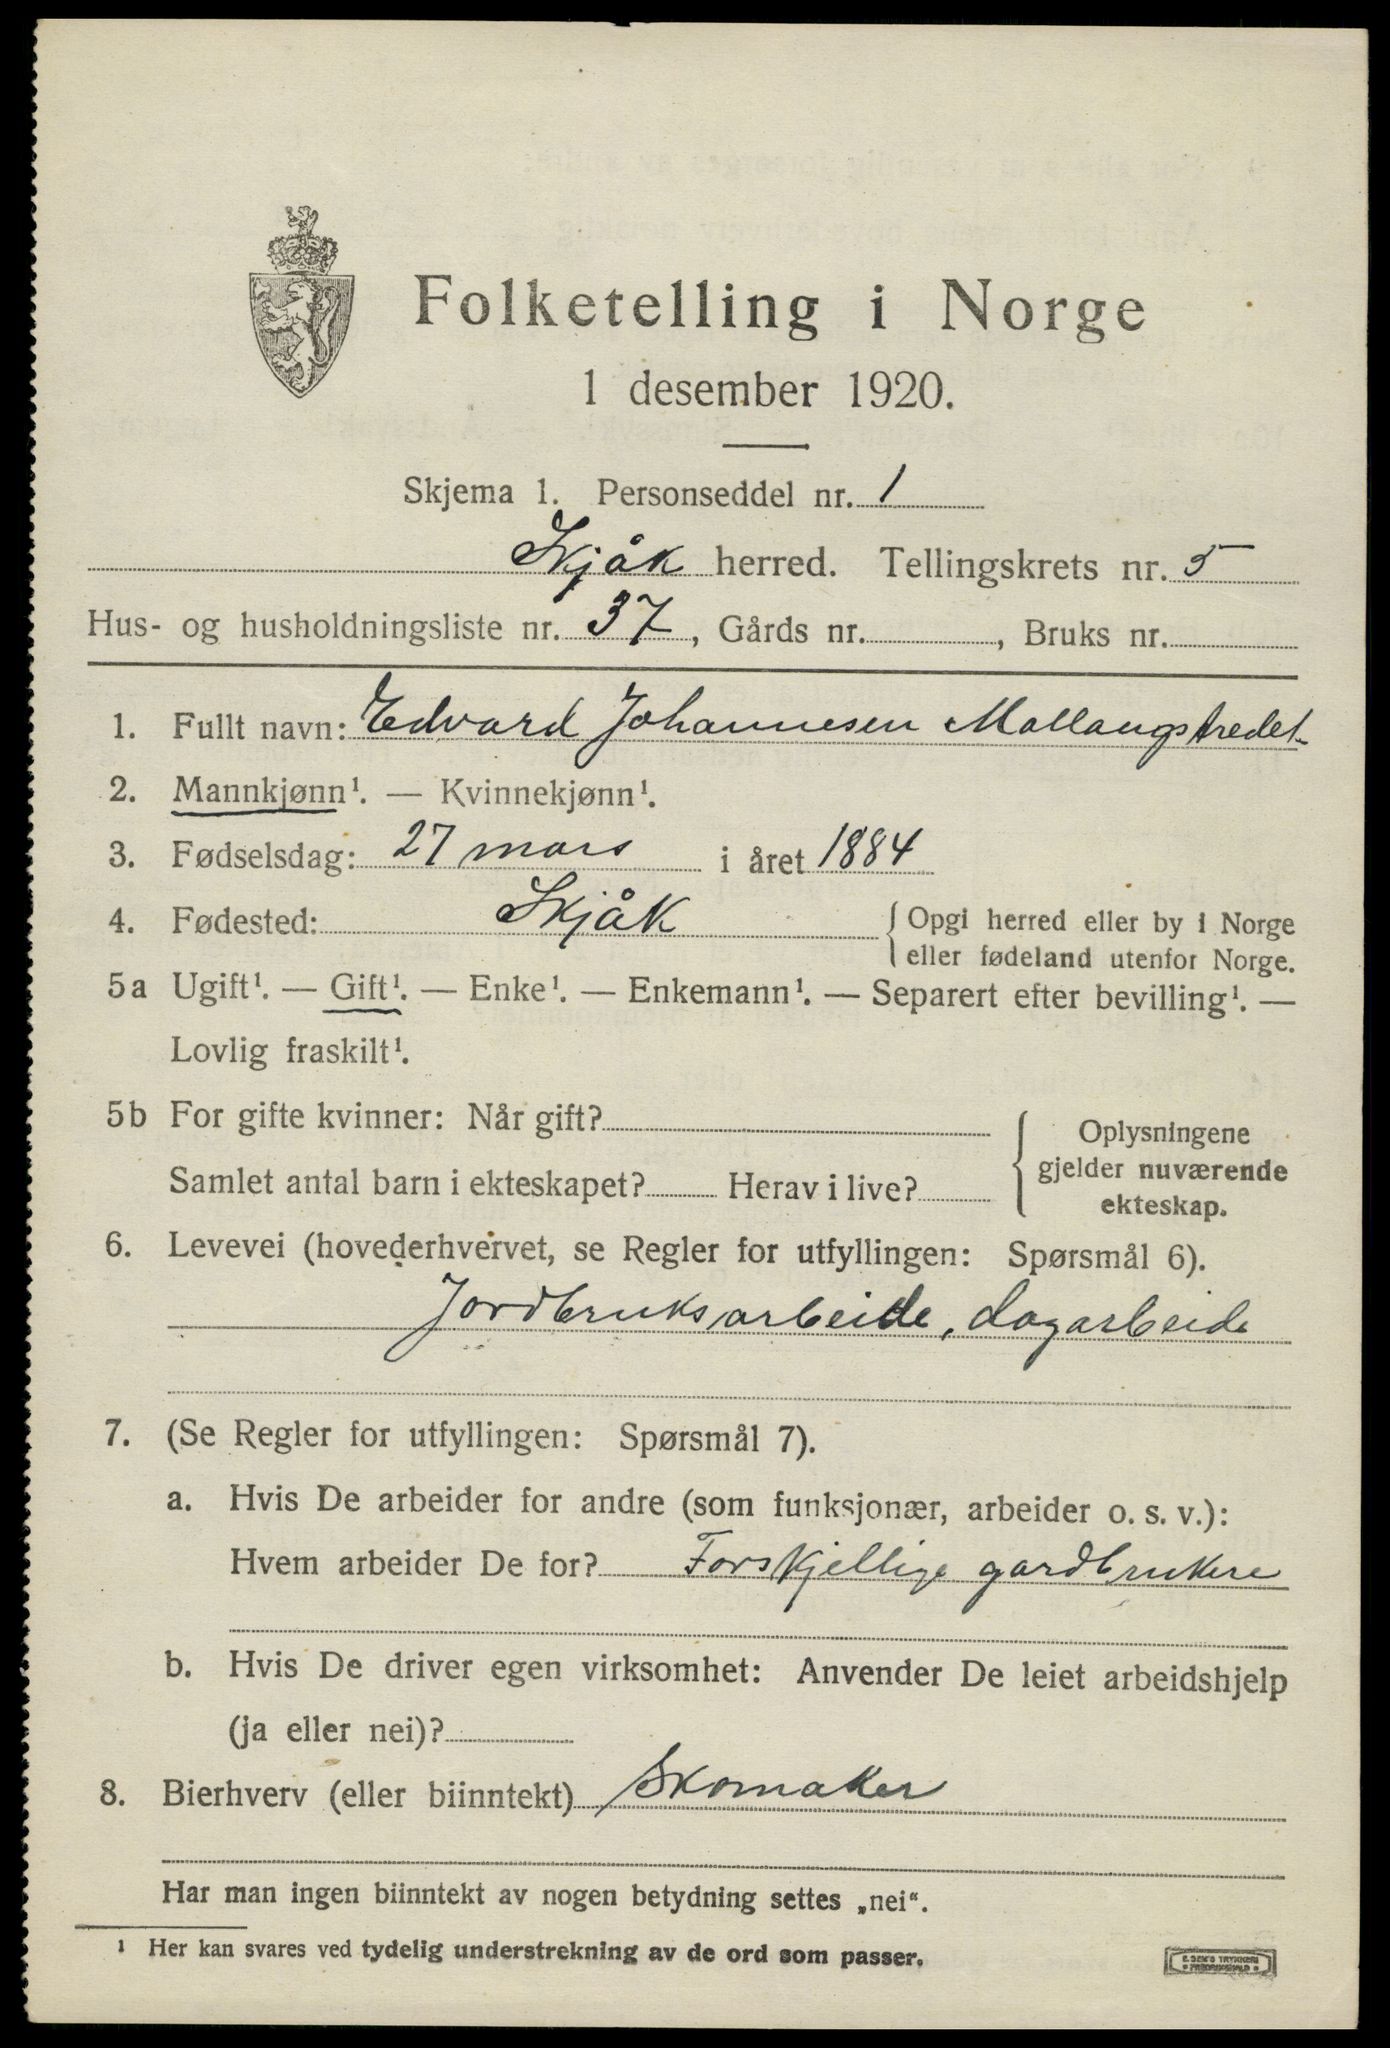 Folketelling i Norge
1 desember 1920.
Skjema 1. Personseddel nr. 1
Skjåk herred. Tellingskrets nr. 5
Hus- og husholdningsliste nr. 37, Gårds nr. , Bruks nr.
1. Fullt navn: Edvard Johannesen Mollaugstredet
2. Mannkjønn¹. — Kvinnekjønn¹.
3. Fødselsdag: 27 mars i året 1884
4. Fødested: Skjåk { Opgi herred eller by i Norge
eller fødeland utenfor Norge.
5a Ugift¹. — Gift¹. — Enke¹. — Enkemann¹. — Separert efter bevilling¹. —
Lovlig fraskilt¹.
5b For gifte kvinner: Når gift?
Samlet antal barn i ekteskapet? Herav i live?
Oplysningene
gjelder nuværende
ekteskap.
6. Levevei (hovederhvervet, se Regler for utfyllingen: Spørsmål 6).
Jordbruksarbeide, dagarbeide
7. (Se Regler for utfyllingen: Spørsmål 7).
a. Hvis De arbeider for andre (som funksjonær, arbeider o. s. v.):
Hvem arbeider De for? Forskjellige gardbrukere
b. Hvis De driver egen virksomhet: Anvender De leiet arbeidshjelp
(ja eller nei)?
8. Bierhverv (eller biinntekt) Skomaker
Har man ingen biinntekt av nogen betydning settes „nei“.
¹ Her kan svares ved tydelig understrekning av de ord som passer.